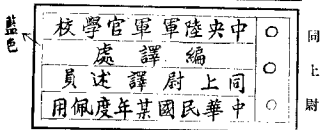 中央陸軍軍官學校
編譯處
同上尉譯述員
中華民國某年度佩用
同上尉
藍色